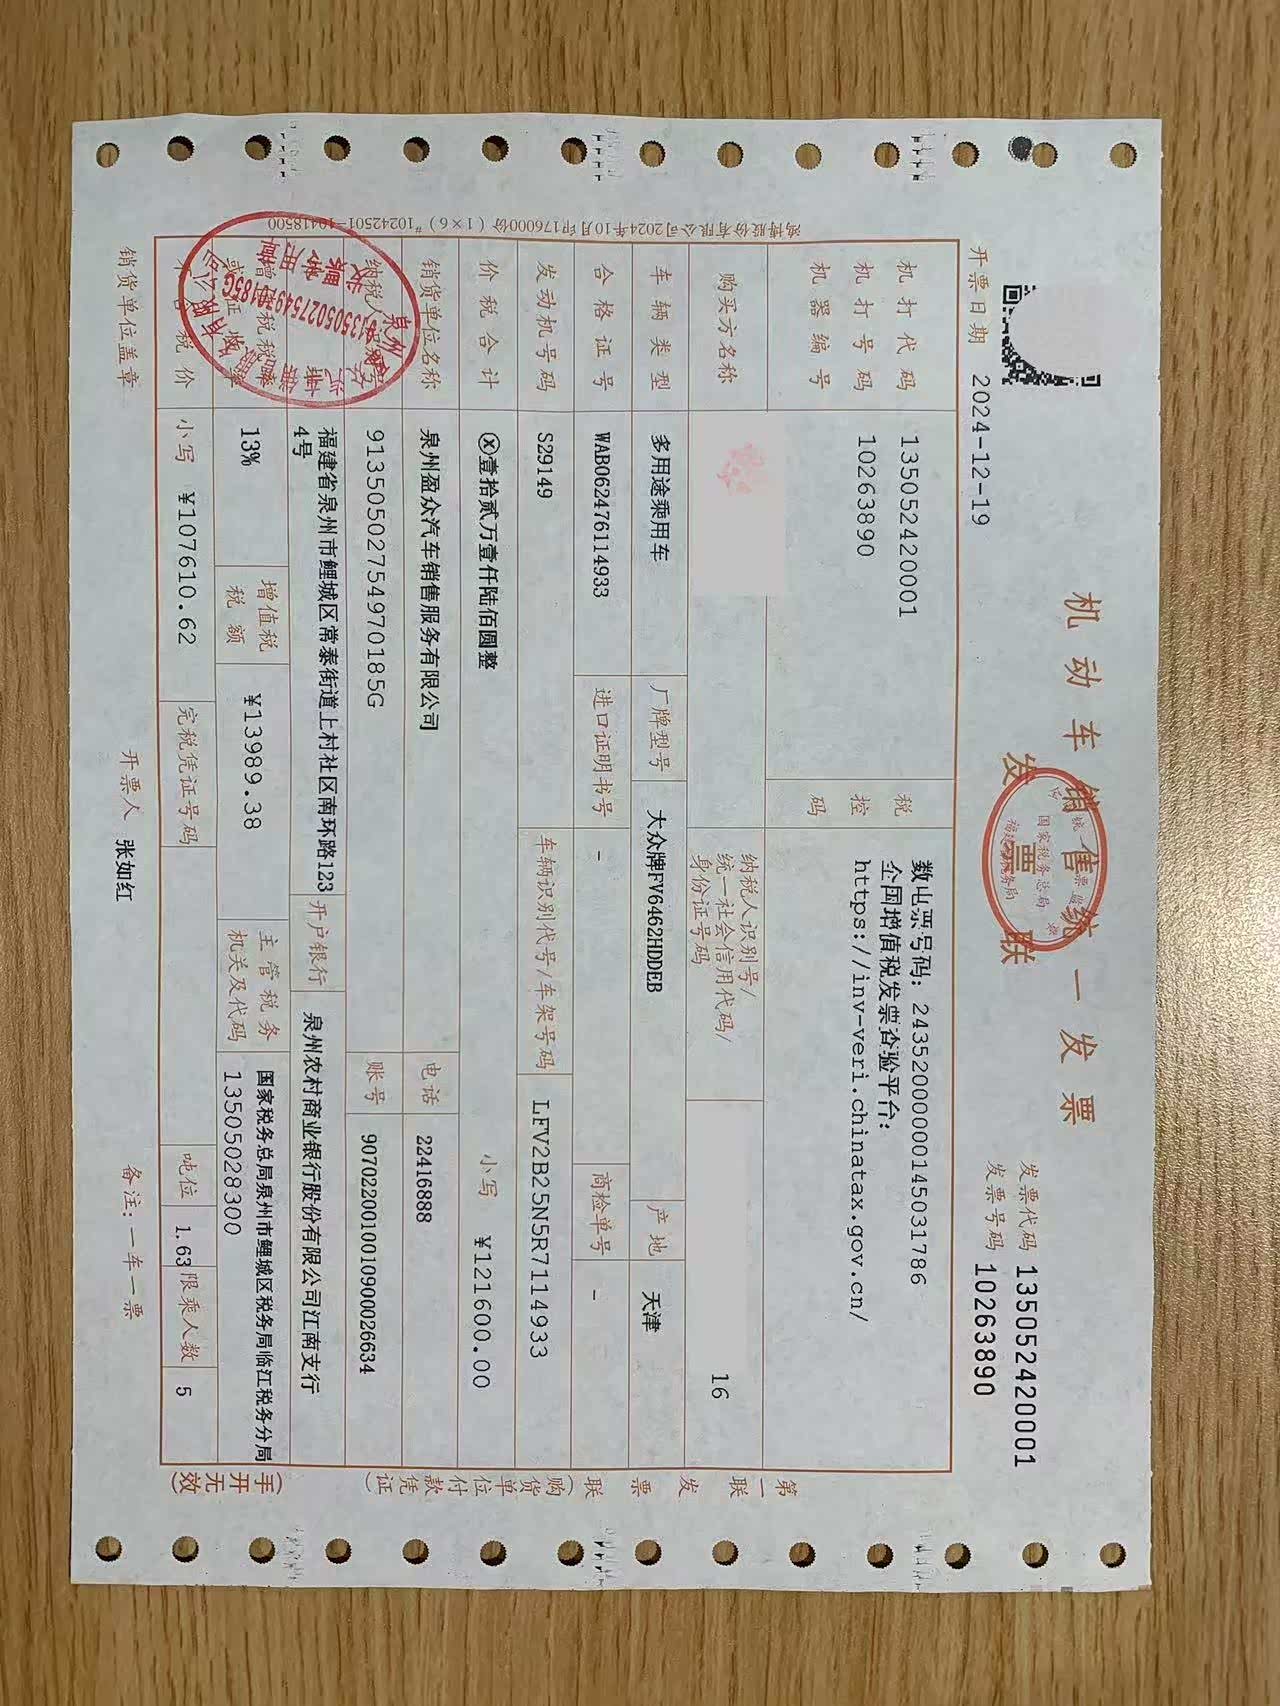 机动车销售统一发票
发票联
发票代码 135052420001
发票号码 10263890
开票日期 2024-12-19
机打代码 135052420001
机打号码 10263890
机器编号
税控码
数电票号码：24352000000145031786
全国增值税发票查验平台：
https://inv-veri.chinatax.gov.cn/
购买方名称
纳税人识别号/
统一社会信用代码/
身份证号码
16
车辆类型 多用途乘用车 厂牌型号 大众牌FV6462HDDEB 产地 天津
合格证号 WAB062476114933 进口证明书号 - 商检单号 -
发动机号码 S29149 车辆识别代号/车架号码 LFV2B25N5R7114933
价税合计 ⓧ壹拾贰万壹仟陆佰圆整 小写 ¥121600.00
销货单位名称 泉州盈众汽车销售服务有限公司 电话 22416888
纳税人识别号 91350502754970185G 账号 9070220010010900026634
福建省泉州市鲤城区常泰街道上村社区南环路123
4号
开户银行 泉州农村商业银行股份有限公司江南支行
增值税税率 13% 增值税
税额 ¥13989.38 主管税务
机关及代码 国家税务总局泉州市鲤城区税务局临江税务分局
13505028300
不含税价 小写 ¥107610.62 完税凭证号码 吨位 1.63 限乘人数 5
销货单位盖章 开票人 张如红 备注：一车一票
第一联 发票联（购货单位付款凭证）（手开无效）
鸿博股份有限公司2024年10月印176000份（1×6）#10242501-10418500
国家税务总局
91350502754970185G
发票专用章